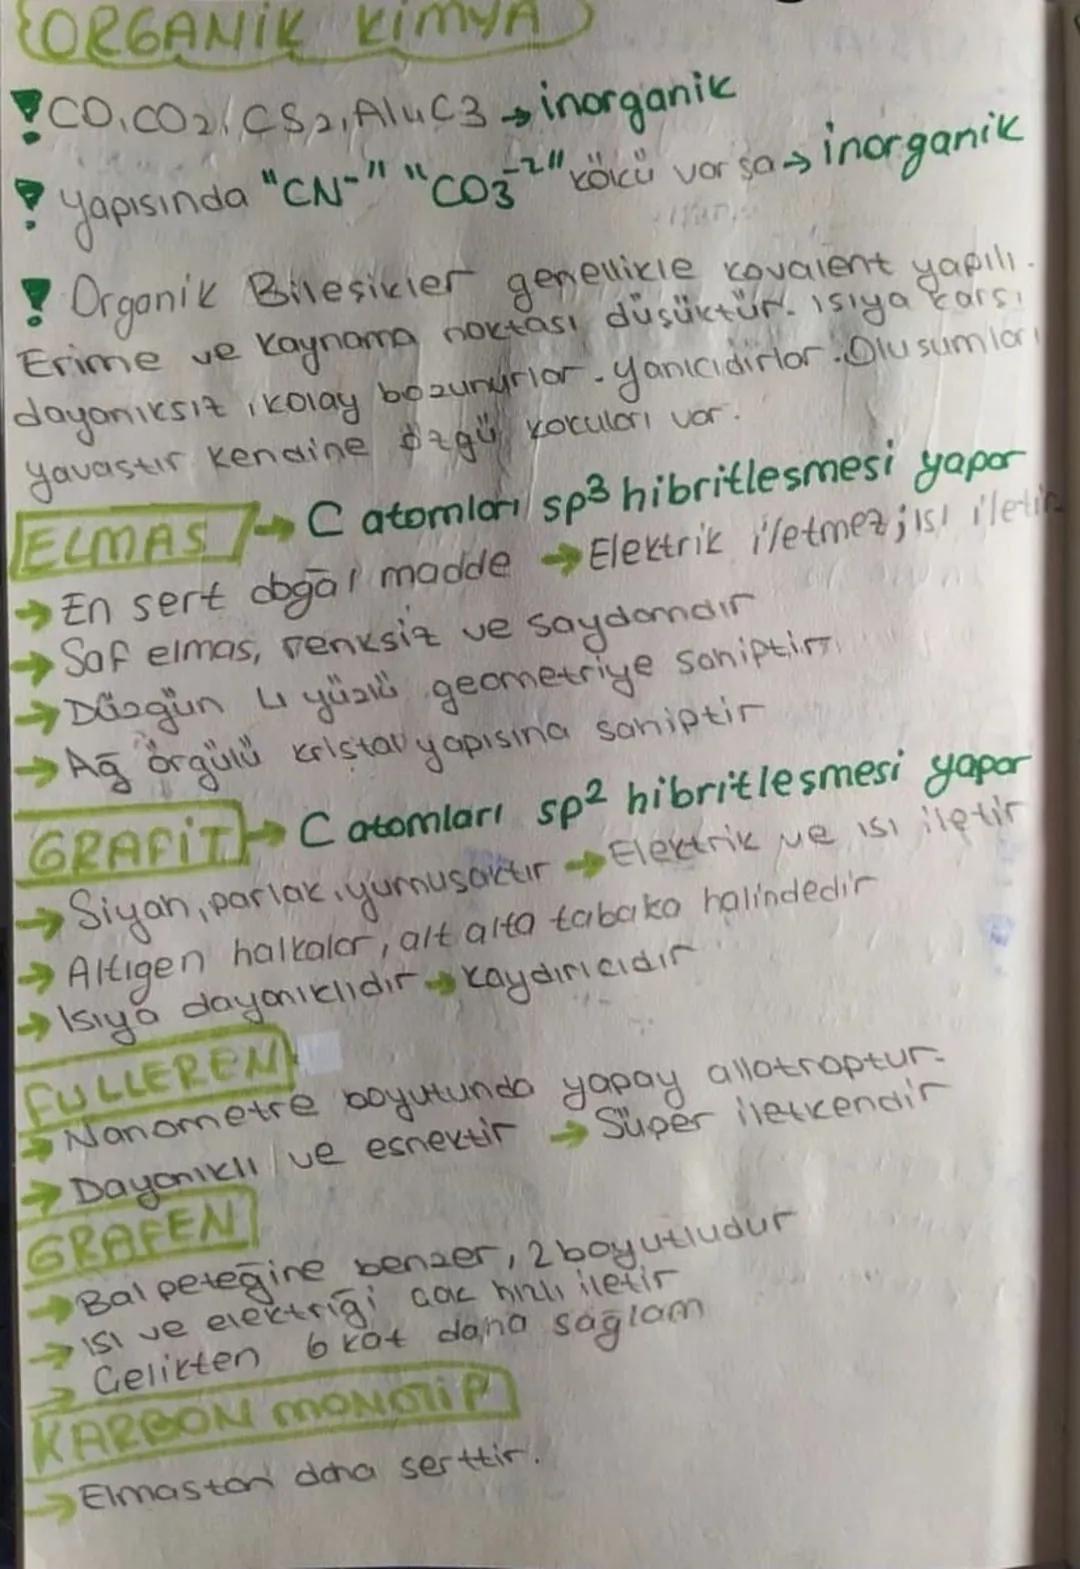 ORGANİK KİMYA
CO, CO2, CS2, Al4C3 → inorganik
yapısında "CN-" "CO3-2" kökü varsa → inorganik
Organik Bileşikler genellikle kovalent yapılı.
Erime ve Kaynama noktası düşüktür. ısıya karşı
dayanıksız, kolay bozunurlar. Yanıcıdırlar. Oluşumları
yavaştır kendine özgü kokuları var.
ELMAS → C atomları sp3 hibritleşmesi yapar
→ En sert doğal madde → Elektrik iletmez; ısı iletir
→ Saf elmas, renksiz ve saydamdır
→ Düzgün 4 yüzlü geometriye sahiptir
→ Ağ örgülü kristal yapısına sahiptir
GRAFİT → C atomları sp2 hibritleşmesi yapar
→ Siyah, parlak, yumuşaktır → Elektrik ve ısı iletir
→ Altıgen halkalar, alt alta tabaka halindedir
→ Isıya dayanıklıdır → kaydırıcıdır
FULLEREN
→ Nanometre boyutunda yapay allotroptur.
→ Dayanıklı ve esnektir → Süper iletkendir
GRAFEN
→ Bal peteğine benzer, 2 boyutludur
→ ısı ve elektriği çok hızlı iletir
→ Çelikten 6 kat daha sağlam
KARBON MONOTİP
→ Elmastan daha serttir.